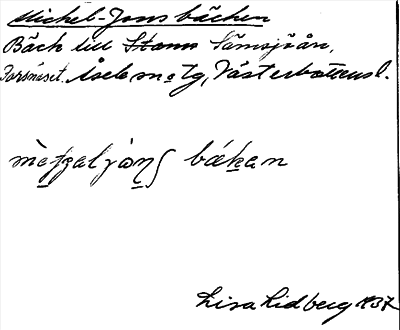 Michel-Jons bäcken
Bäck till Stamm Sämsjöån,
Torsnäset. Åsele m o tg, Västerbottens l.
bäkan
Lisa Lidberg 1937